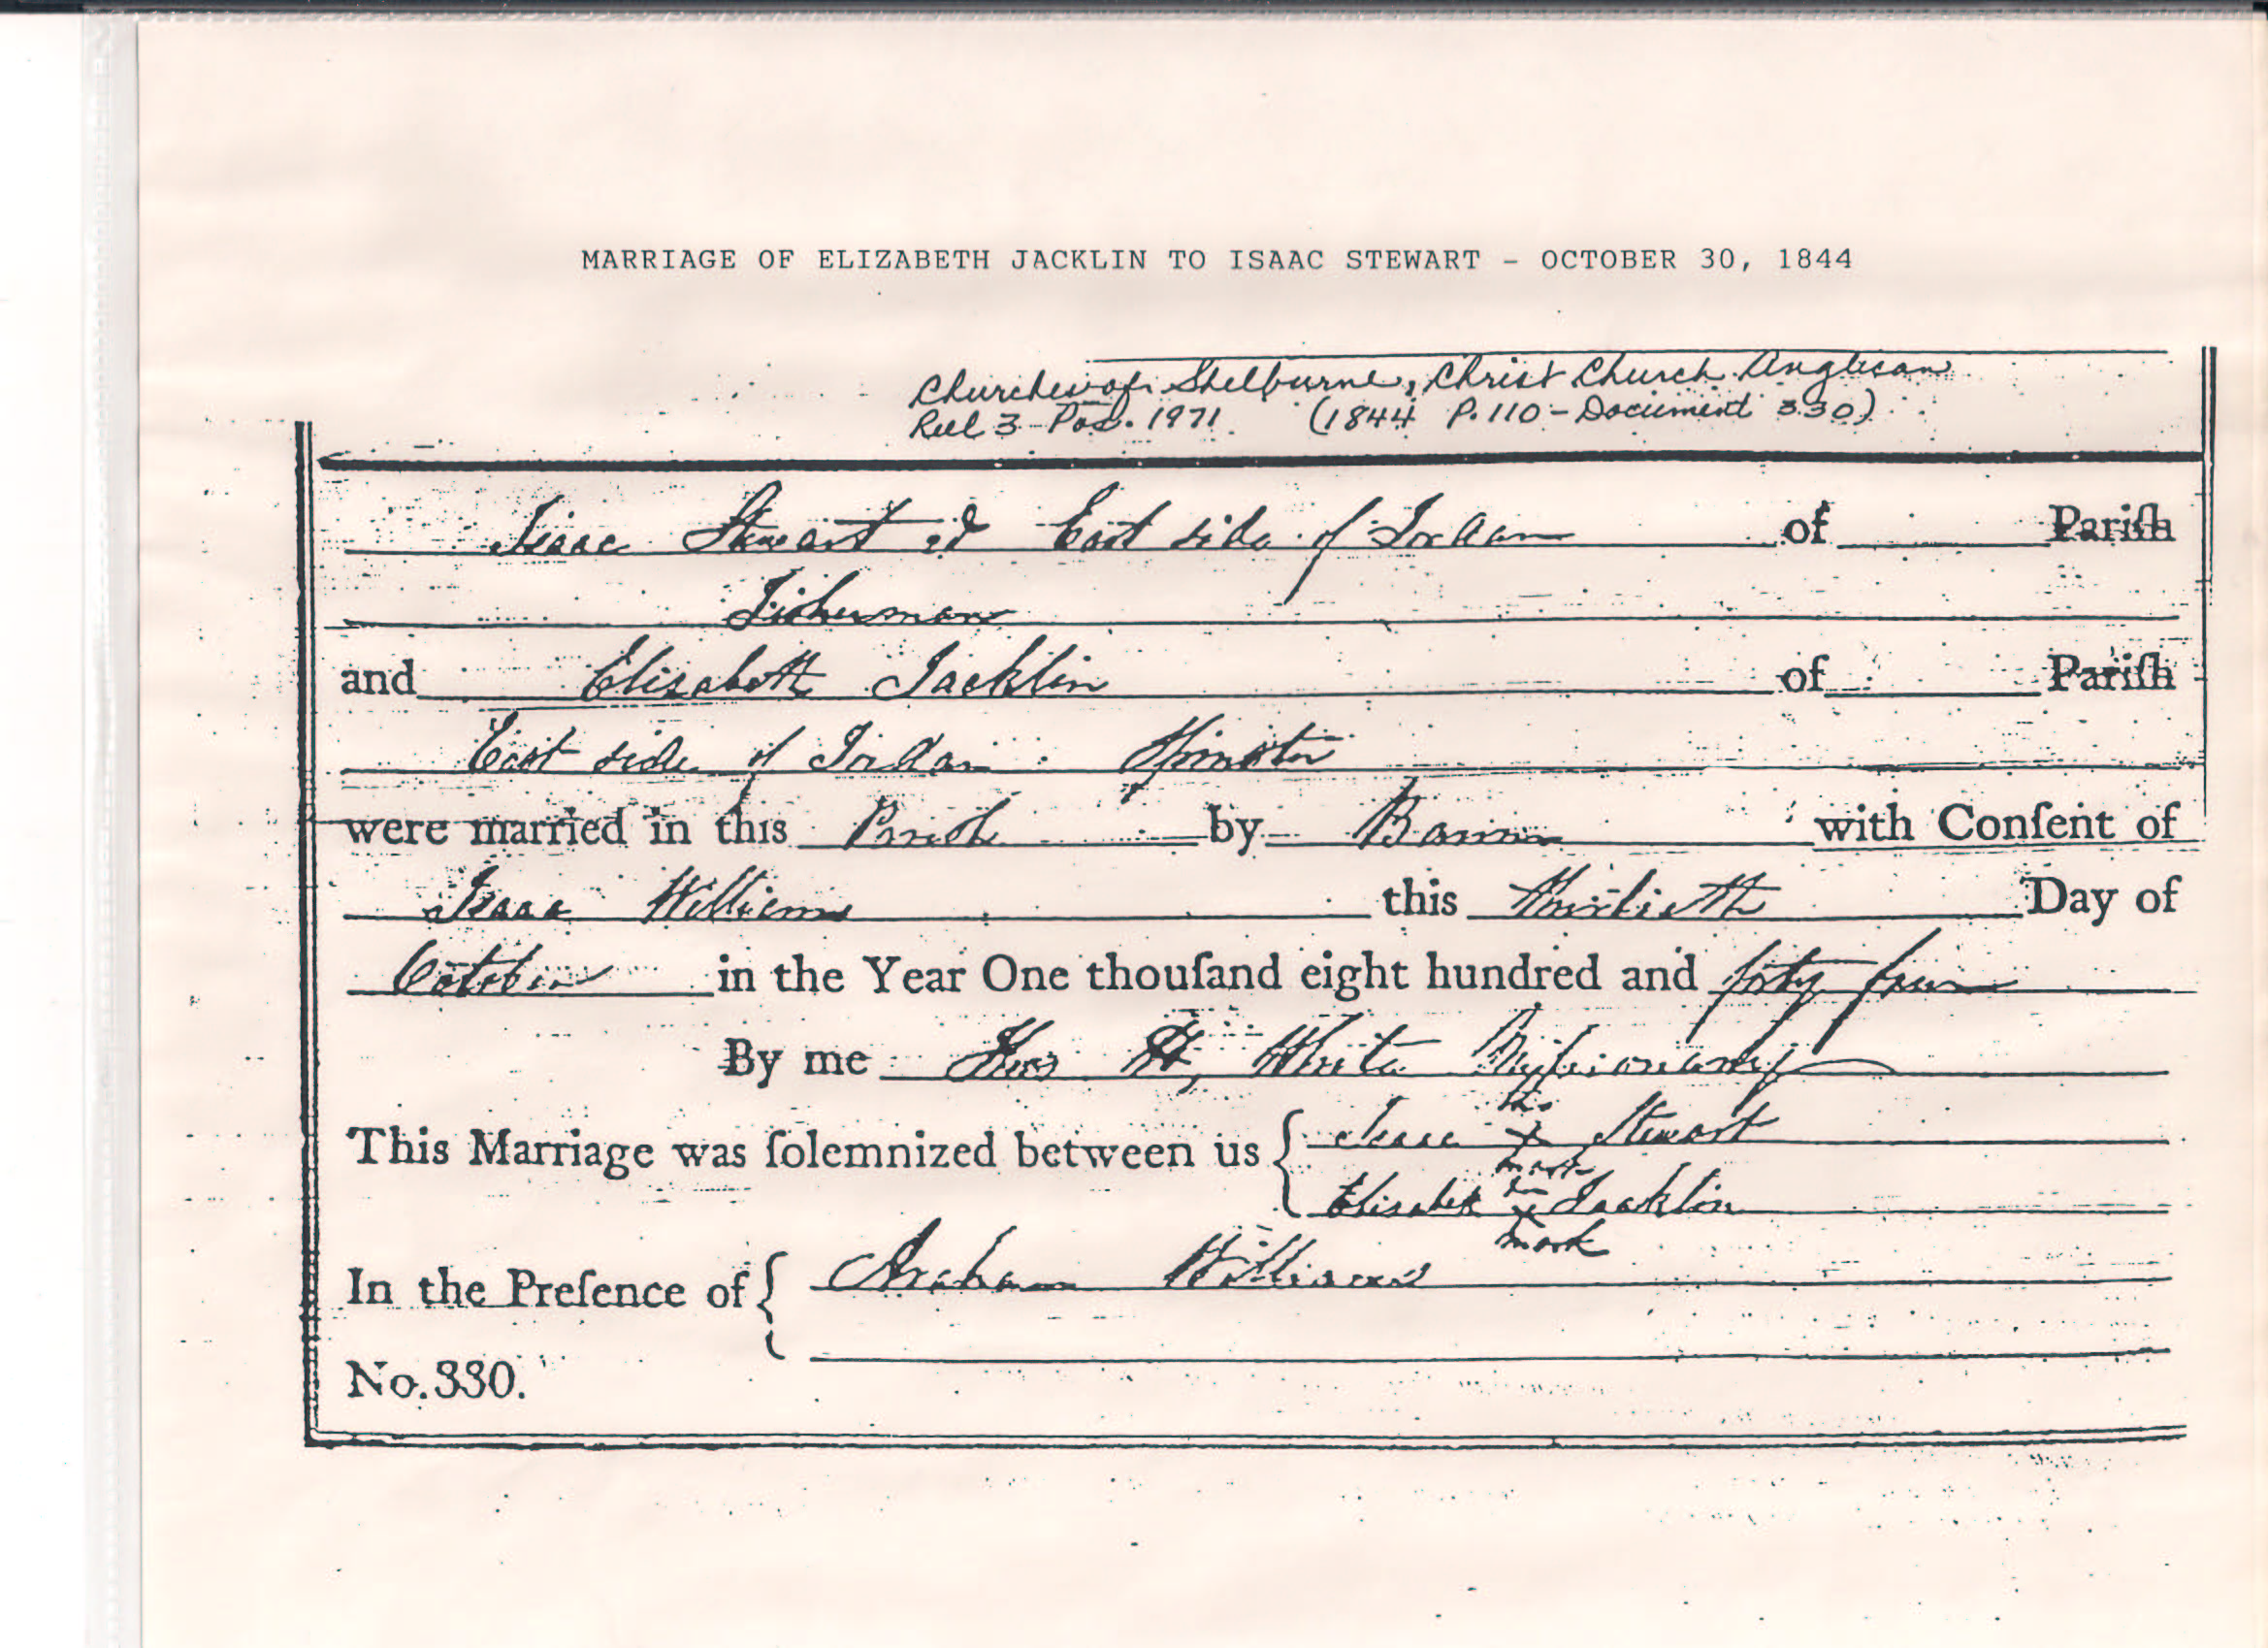 MARRIAGE OF ELIZABETH JACKLIN TO ISAAC STEWART - OCTOBER 30, 1844
Churches of Shelburne, Christ Church Anglican
Reel 3 - Pos. 1971 (1844 P. 110 - Document 330)
Isaac Stewart of East side of Jordan of Pariſh
Fisherman
and Elisabeth Jacklin of Pariſh
East side of Jordan Spinster
were married in this Parish by Banns with Conſent of
Isaac Williams this thirtieth Day of
October in the Year One thouſand eight hundred and forty four
By me Thos H, White Missionary
his
This Marriage was ſolemnized between us { Isaac X Stewart
mark
her
Elisabeth X Jacklin
mark
In the Preſence of { Williams
No. 330.